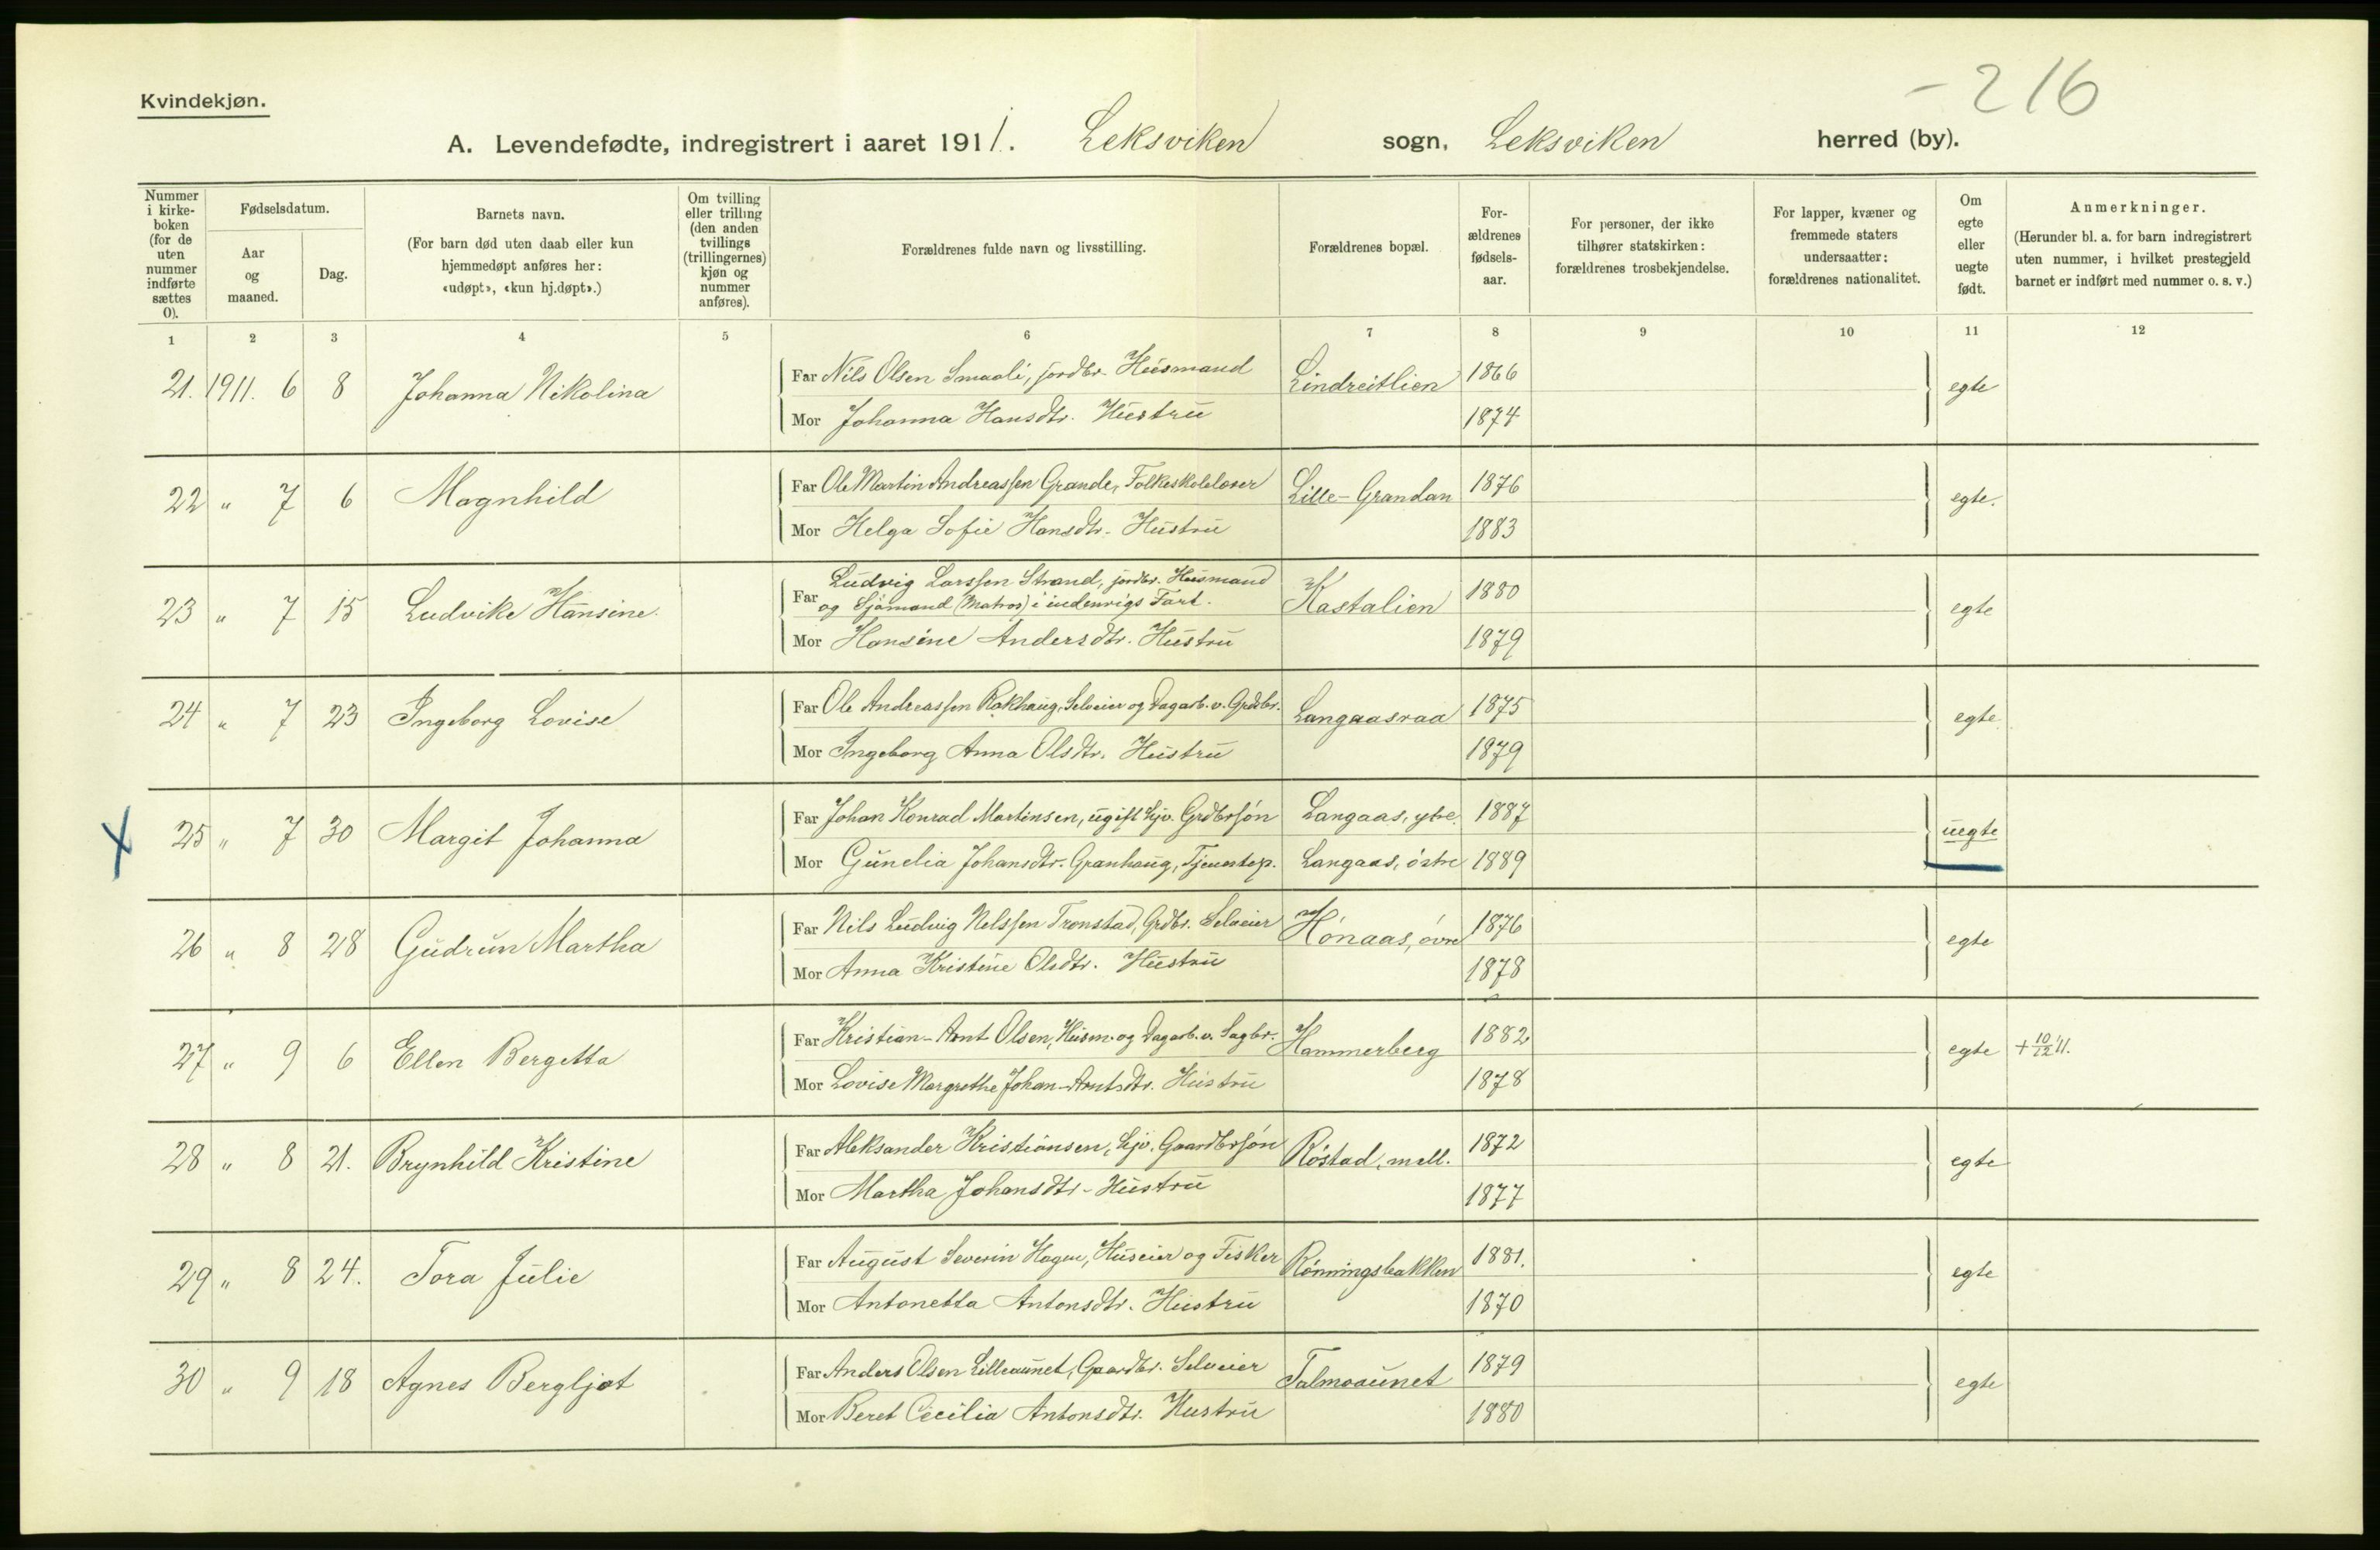 -216
Kvindekjøn.
A. Levendefødte, indregistrert i aaret 1911. Leksviken sogn, Leksviken herred (by).
Nummer i kirke- boken (for de uten nummer indførte sættes 0).
Fødselsdatum.
Aar og maaned.
Dag.
Barnets navn.
(For barn død uten daab eller kun hjemmedøpt anføres her: «udøpt», «kun hj.døpt».)
Om tvilling eller trilling (den anden tvillings (trillingernes) kjøn og nummer anføres).
Forældrenes fulde navn og livsstilling.
Forældrenes bopæl.
For- ældrenes fødsels- aar.
For personer, der ikke tilhører statskirken: forældrenes trosbekjendelse.
For lapper, kvæner og fremmede staters undersaatter: forældrenes nationalitet.
Om egte eller uegte født.
Anmerkninger.
(Herunder bl. a. for barn indregistrert uten nummer, i hvilket prestegjeld barnet er indført med nummer o. s. v.)
1 2 3 4 5 6 7 8 9 10 11 12
21. 1911. 6 8 Johanna Nikolina Far Nils Olsen Smaali, jordbr. Husmand Lindreitlien 1866 egte
Mor Johanna Hansdtr. Hustru 1874
22 " 7 6 Magnhild Far Ole Martin Andreassen Grande, Folkeskolelærer Lille-Grandan 1876 egte.
Mor Helga Sofie Hansdtr. Hustru 1883
23 " 7 15 Ludvike Hansine. Far Ludvig Larssen Strand, jordbr. Husmand
og Sjømand (Matros) i indenrigs Fart. Kastalien 1880 egte
Mor Hansine Andersdtr. Hustru 1879
24 " 7 23 Ingeborg Lovise Far Ole Andreassen Rakhaug, Selveier og Dagarb. v. Grdbr. Langaasraa 1875 egte
Mor Ingeborg Anna Olsdtr. Hustru 1879
25 " 7 30 Margit Johanna Far Johan Konrad Martinsen, ugift hjv. Grdbrsøn Langaas, ytre 1887 uegte
Mor Gunelia Johansdtr. Granhaug, Tjenestep. Langaas, østre 1889
26 " 8 28 Gudrun Martha Far Nils Ludvig Nelssen Tronstad, Grdbr. Selveier Hönaas, øvre 1876 egte
Mor Anna Kristine Olsdtr. Hustru 1878
27 " 9 6 Ellen Bergetta Far Kristian-Arnt Olsen, Husm. og Dagarb. v. Sagbr. Hammerberg 1882 egte + 10/12 11.
Mor Lovise Margrethe Johan-Arntsdtr. Hustru 1878
28 " 8 21. Brynhild Kristine Far Aleksander Kristiansen, hjv. Gaardbrsøn Röstad, mell. 1872 egte
Mor Martha Johansdtr. Hustru 1877
29 " 8 24. Tora Julie Far August Severin Hagen, Huseier og Fisker Rönningsbakken 1881. egte
Mor Antonetta Antonsdtr. Hustru 1870
30 " 9 18 Agnes Bergljot Far Anders Olsen Lilleaunet, Gaardbr. Selveier Talmoaunet 1879 egte
Mor Beret Cecilia Antonsdtr. Hustru 1880